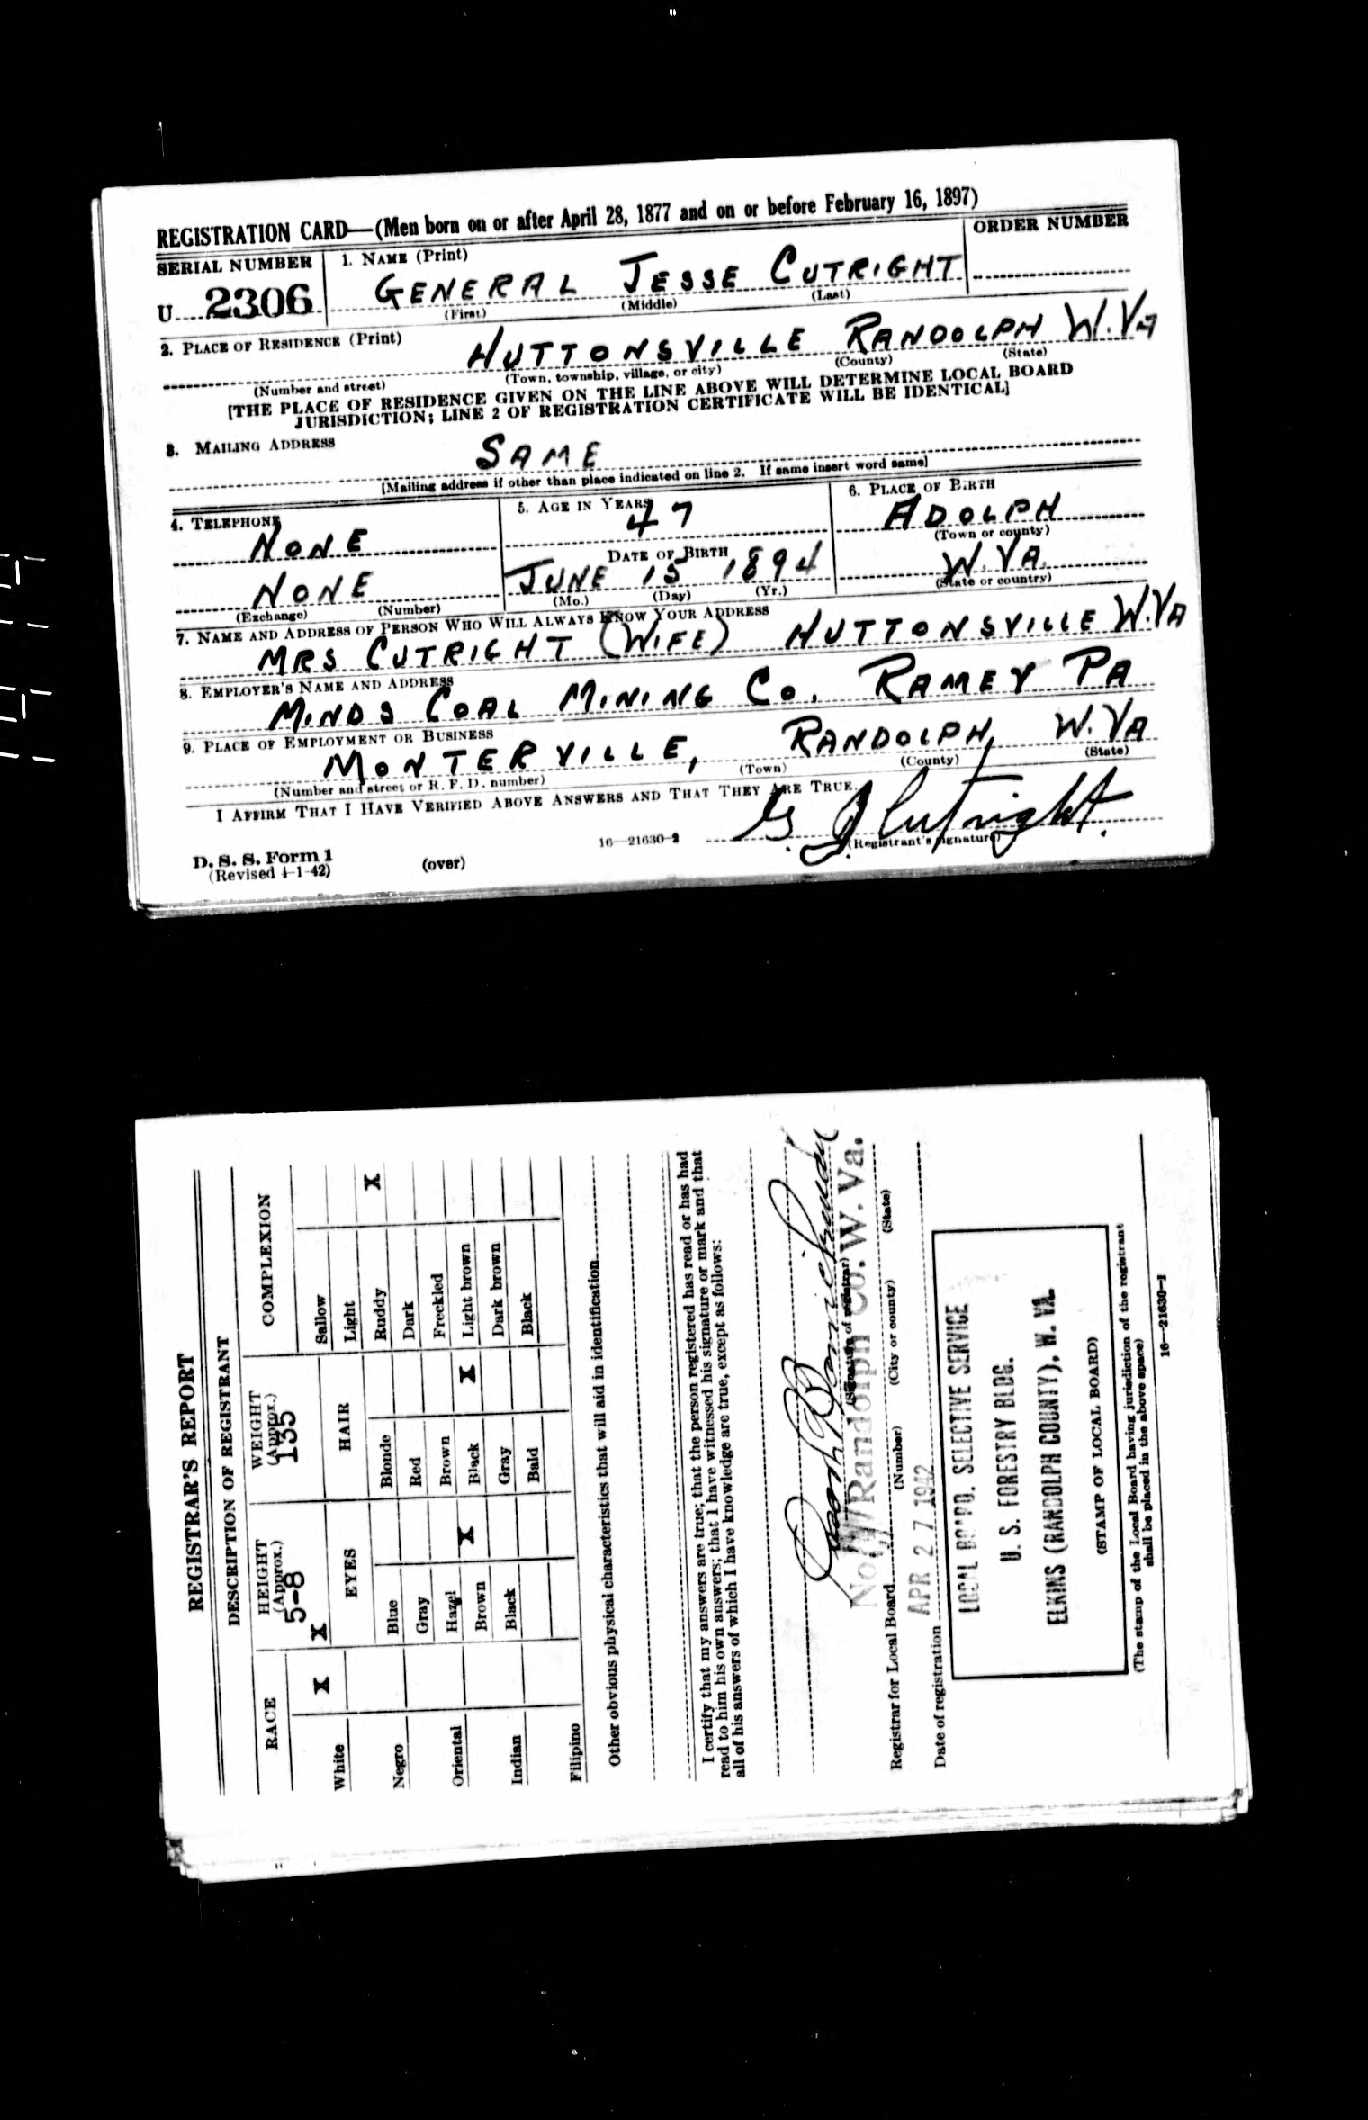 REGISTRATION CARD—(Men born on or after April 28, 1877 and on or before February 16, 1897)
SERIAL NUMBER
1. NAME (Print)
ORDER NUMBER
U 2306
GENERAL JESSE CUTRIGHT
(First) (Middle) (Last)
2. PLACE OF RESIDENCE (Print)
HUTTONSVILLE RANDOLPH W. VA
(Number and street) (Town, township, village, or city) (County) (State)
[THE PLACE OF RESIDENCE GIVEN ON THE LINE ABOVE WILL DETERMINE LOCAL BOARD
JURISDICTION; LINE 2 OF REGISTRATION CERTIFICATE WILL BE IDENTICAL]
3. MAILING ADDRESS
SAME
[Mailing address if other than place indicated on line 2. If same insert word same]
4. TELEPHONE
NONE
NONE
(Exchange) (Number)
5. AGE IN YEARS
47
DATE OF BIRTH
JUNE 15 1894
(Mo.) (Day) (Yr.)
6. PLACE OF BIRTH
ADOLPH
(Town or county)
W. VA.
(State or country)
7. NAME AND ADDRESS OF PERSON WHO WILL ALWAYS KNOW YOUR ADDRESS
MRS CUTRIGHT (WIFE) HUTTONSVILLE W. VA
8. EMPLOYER'S NAME AND ADDRESS
MINDS COAL MINING CO. RAMEY PA
9. PLACE OF EMPLOYMENT OR BUSINESS
MONTERVILLE, RANDOLPH, W. VA
(Number and street or R. F. D. number) (Town) (County) (State)
I AFFIRM THAT I HAVE VERIFIED ABOVE ANSWERS AND THAT THEY ARE TRUE.
G. J. Cutright.
(Registrant's signature)
D. S. S. Form 1
(Revised 4-1-42)
(over)
16—21630-2
REGISTRAR'S REPORT
DESCRIPTION OF REGISTRANT
RACE
HEIGHT
(Approx.)
5-8
WEIGHT
(Approx.)
135
COMPLEXION
White X
Negro
Oriental
Indian
Filipino
X
EYES
Blue
Gray
Hazel
Brown X
Black
HAIR
Blonde
Red
Brown
Black X
Gray
Bald
Sallow
Light
Ruddy X
Dark
Freckled
Light brown
Dark brown
Black
Other obvious physical characteristics that will aid in identification
I certify that my answers are true; that the person registered has read or has had
read to him his own answers; that I have witnessed his signature or mark and that
all of his answers of which I have knowledge are true, except as follows:
(Signature of registrar)
Randolph Co. W. Va.
Registrar for Local Board
(Number) (City or county) (State)
Date of registration APR 27 1942
LOCAL BOARD, SELECTIVE SERVICE
U. S. FORESTRY BLDG.
ELKINS (RANDOLPH COUNTY), W. VA.
(STAMP OF LOCAL BOARD)
(The stamp of the Local Board having jurisdiction of the registrant
shall be placed in the above space)
16—21630-1